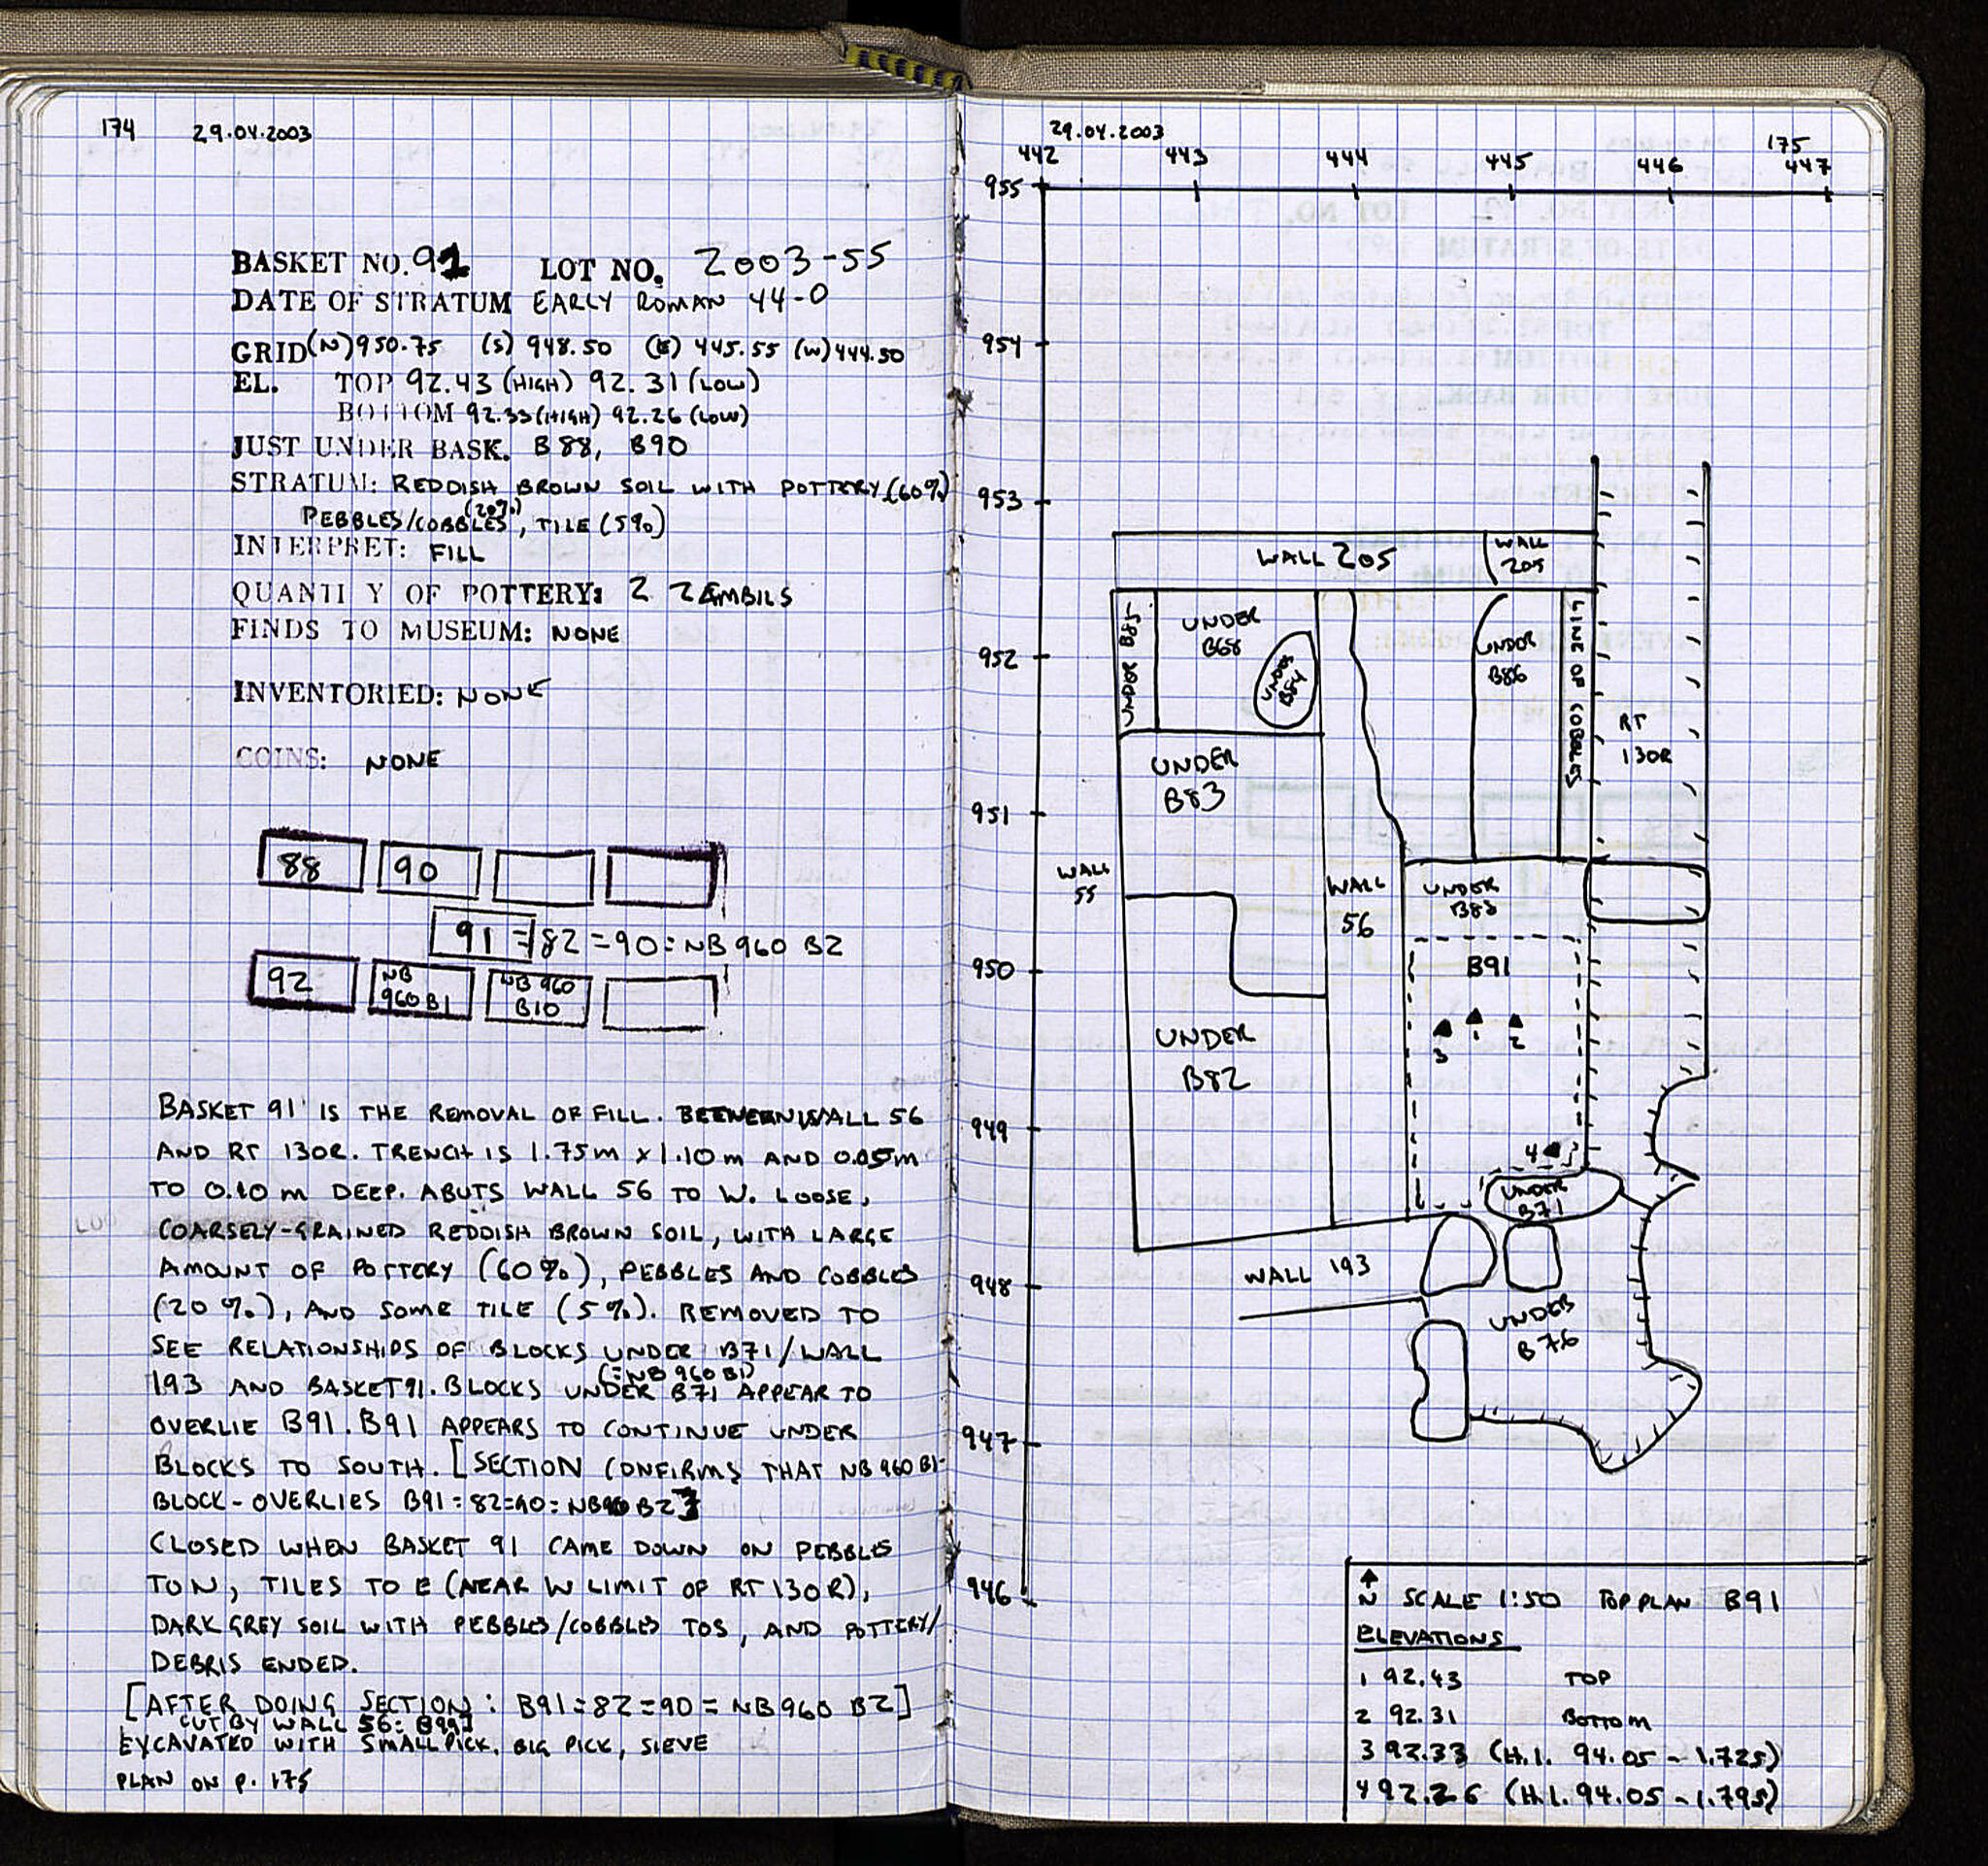 174 29.04.2003
BASKET NO. 91 LOT NO. 2003-55
DATE OF STRATUM EARLY ROMAN 44-0
GRID (N) 950.75 (S) 948.50 (E) 445.55 (W) 444.50
EL. TOP 92.43 (HIGH) 92.31 (LOW)
BOTTOM 92.33 (HIGH) 92.26 (LOW)
JUST UNDER BASK. B88, B90
STRATUM: REDDISH BROWN SOIL WITH POTTERY (60%)
PEBBLES/COBBLES (20%), TILE (5%)
INTERPRET: FILL
QUANTI Y OF POTTERY: 2 ZEMBILS
FINDS TO MUSEUM: NONE
INVENTORIED: NONE
COINS: NONE
88 90
91 = 82 = 90 = NB 960 B2
92 NB 960 B1 NB 960 B10
BASKET 91 IS THE REMOVAL OF FILL. BETWEEN WALL 56
AND RT 130R. TRENCH IS 1.75m x 1.10m AND 0.05m
TO 0.10 m DEEP. ABUTS WALL 56 TO W. LOOSE,
COARSELY-GRAINED REDDISH BROWN SOIL, WITH LARGE
AMOUNT OF POTTERY (60%), PEBBLES AND COBBLES
(20%), AND SOME TILE (5%). REMOVED TO
SEE RELATIONSHIPS OF BLOCKS UNDER B71/WALL
193 AND BASKET 91. BLOCKS UNDER B71 (=NB 960 B1) APPEAR TO
OVERLIE B91. B91 APPEARS TO CONTINUE UNDER
BLOCKS TO SOUTH. [SECTION CONFIRMS THAT NB 960 B1-
BLOCK - OVERLIES B91 = 82 = 90 = NB960 B2]
CLOSED WHEN BASKET 91 CAME DOWN ON PEBBLES
TO N, TILES TO E (NEAR W LIMIT OF RT 130R),
DARK GREY SOIL WITH PEBBLES/COBBLES TO S, AND POTTERY/
DEBRIS ENDED.
[AFTER DOING SECTION: B91 = 82 = 90 = NB 960 B2]
CUT BY WALL 56: B99]
EXCAVATED WITH SMALL PICK, BIG PICK, SIEVE
PLAN ON P. 175
29.04.2003 175
442 443 444 445 446 447
955
954
953
952
951
950
949
948
947
946
WALL 205
WALL 205
UNDER B85
UNDER B68
UNDER B84
UNDER B86
LINE OF COBBLES
RT 130R
UNDER B83
WALL 55
WALL 56
UNDER B88
B91
3 1 2
UNDER B82
4
UNDER B71
WALL 193
UNDER B76
N SCALE 1:50 TOP PLAN B91
ELEVATIONS
1 92.43 TOP
2 92.31 BOTTOM
3 92.33 (H.I. 94.05 - 1.725)
4 92.26 (H.I. 94.05 - 1.795)